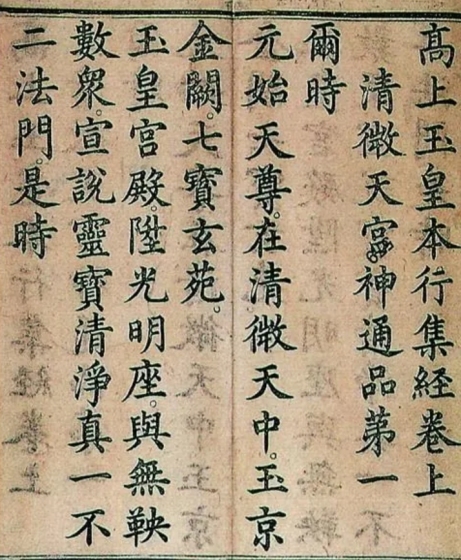 高上玉皇本行集經卷上
清微天宮。神通品第一
爾時
元始天尊。在清微天中。玉京
金闕。七寶玄苑。
玉皇宮殿。陞光明座。與無鞅
數衆。宣說靈寶清淨真一不
二法門。是時